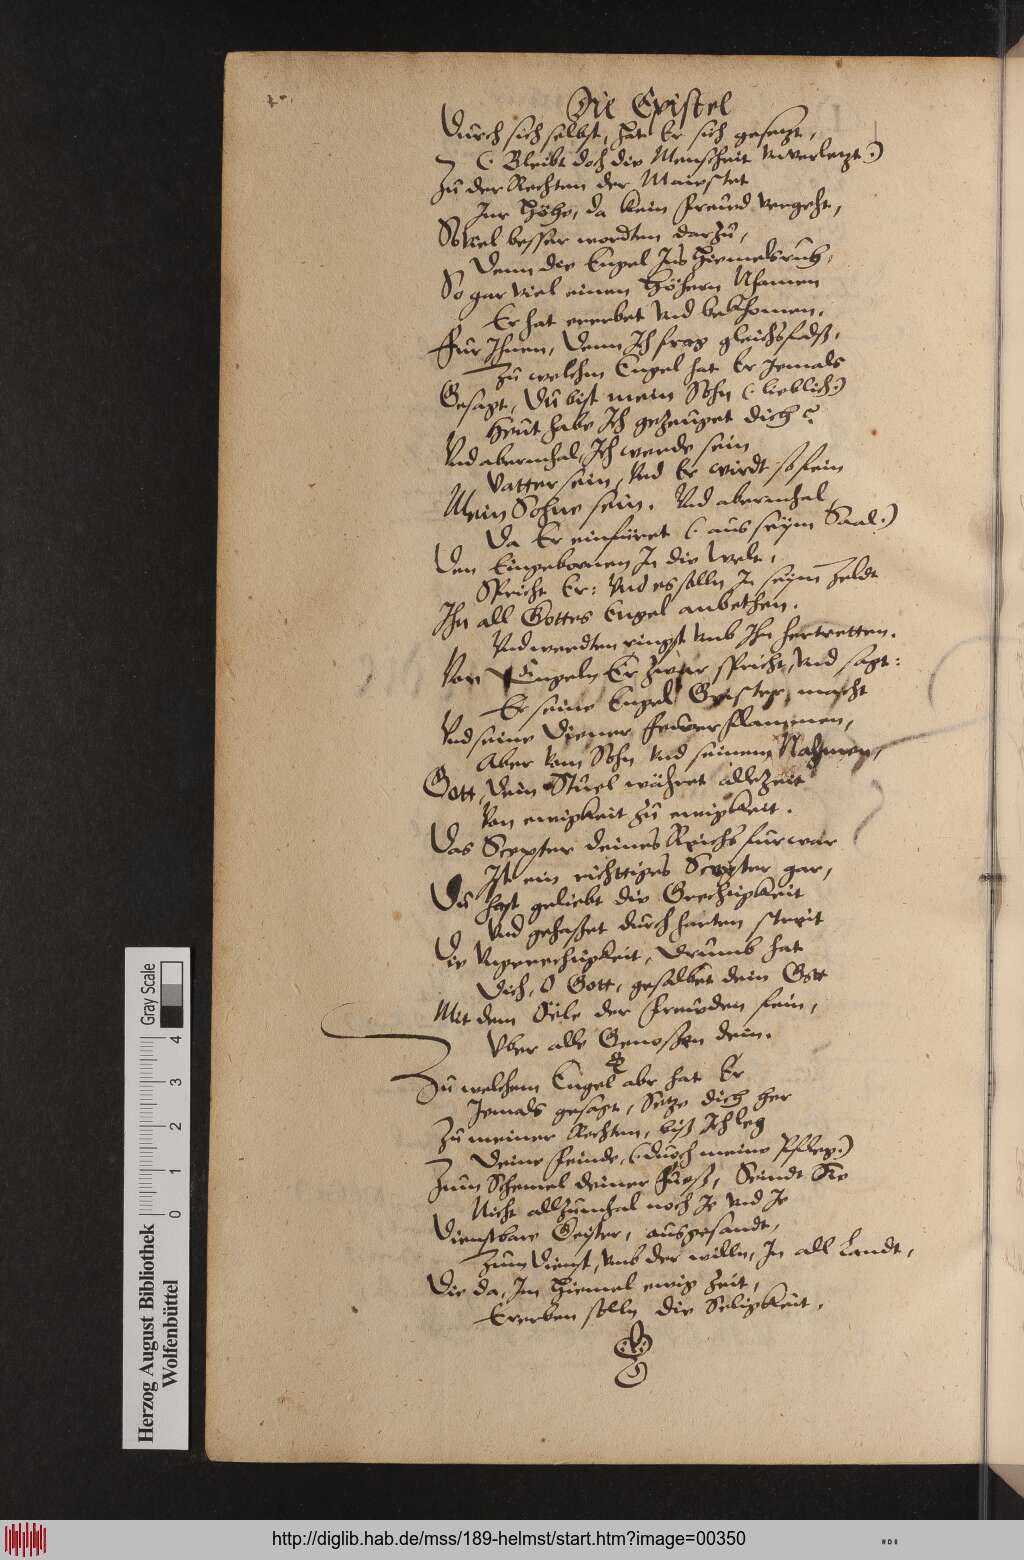 Die Epistel
Durch sich selbst, hat Er sich gesetzt,
(: Bleibt doch die Menscheit Unverletzt :)
Zu der Rechten der Maiestet
Inn Höhe, da kein freud vergeht,
So viel besser wordten darzu,
Denn die Engel Ins Himels ruh,
So gar viel einen Höhern Nhamen
Er hat ererbet Und bekhomen,
Für Ihnen, Denn Ich frag gleichsfals,
Zu welchm Engel hat Er Jemals
Gesagt, Du bist mein Sohn (: lieblich :)
Heut habe Ich gezeuget dich?
Und abermhal, Ich werde sein
Vatter sein, Und Er wirdt so fein
Mein Sohne sein. Und abermhal
Da Er einfüret (: aus seym Saal :)
Den Eingebornen In die Welt,
Spricht Er: Und es solln In seym Zeldt
Ihn all Gottes Engel anbethen.
Und werdten ringst Umb Ihn hertretten.
Von Engeln Er zwar spricht, Und sagt:
Er seine Engel Geister macht
Und seine Diener fewerflammen,
Aber Vom Sohn Und seinem Nahmen,
Gott, Dein Stuel währet allezeit
Von ewigkeit zu ewigkeit.
Das Scepter deines Reichs fürwar
Ist ein richttiges Scepter gar,
Du hast geliebt die Grechtigkeit
Und gehasset durch harten streit
Die Ungerechtigkeit, Drumb hat
Dich, O Gott, gesalbet dein Gott
Mit dem Oele der freuden fein,
Uber alle Genossen dein.
Zu welchem Engel abr hat Er
Jemals gesagt, Setze dich her
Zu meiner Rechten, biß Ich leg
Deine feinde, (: durch meine Pfleg :)
Zum Schemel deiner Füeß, Seindt Sie
Nicht allzumhal noch Je Und Je
Dienstbare Geister, ausgesandt,
Zum Dienst, Umb der willn, In all Landt,
Die da, Im Himel ewig Zeit,
Ererben solln die Seligkeit.
Gray Scale
4 3 2 1 0
Herzog August Bibliothek
Wolfenbüttel
http://diglib.hab.de/mss/189-helmst/start.htm?image=00350